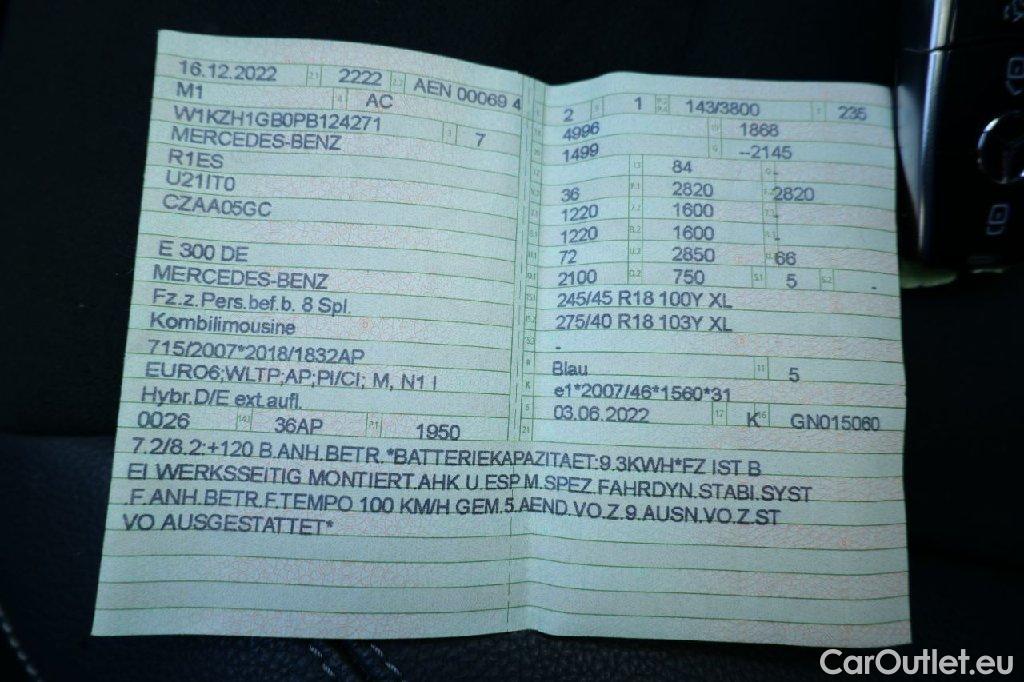 16.12.2022 2.1 2222 2.2 AEN 00069 4
M1 4 AC
W1KZH1GB0PB124271 3 7
MERCEDES-BENZ
R1ES
U21IT0
CZAA05GC
E 300 DE
MERCEDES-BENZ
Fz.z.Pers.bef.b. 8 Spl.
Kombilimousine
715/2007*2018/1832AP
EURO6;WLTP;AP;PI/CI; M, N1 I
Hybr.D/E ext.aufl.
0026 14.1 36AP P.1 1950
2 9 1 143/3800 T 235
4996 1868
1499 --2145
13 84
36 8.1 2820 2820
1220 7.2 1600 -
1220 8.2 1600 -
72 U.2 2850 66
2100 O.2 750 S.1 5 S.2 -
245/45 R18 100Y XL
275/40 R18 103Y XL
-
R Blau 11 5
K e1*2007/46*1560*31
6 03.06.2022 17 K 16 GN015060
21
7.2/8.2:+120 B.ANH.BETR.*BATTERIEKAPAZITAET:9.3KWH*FZ IST B
EI WERKSSEITIG MONTIERT.AHK U.ESP M.SPEZ.FAHRDYN.STABI.SYST
.F.ANH.BETR.F.TEMPO 100 KM/H GEM.5.AEND.VO.Z.9.AUSN.VO.Z.ST
VO AUSGESTATTET*
CarOutlet.eu